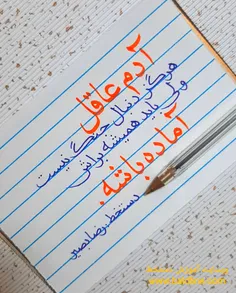 آدم عاقل
هرگز دنبال جنگ نیست
ولی باید همیشه براش
آماده باشه.
دستخط رضا بصیر